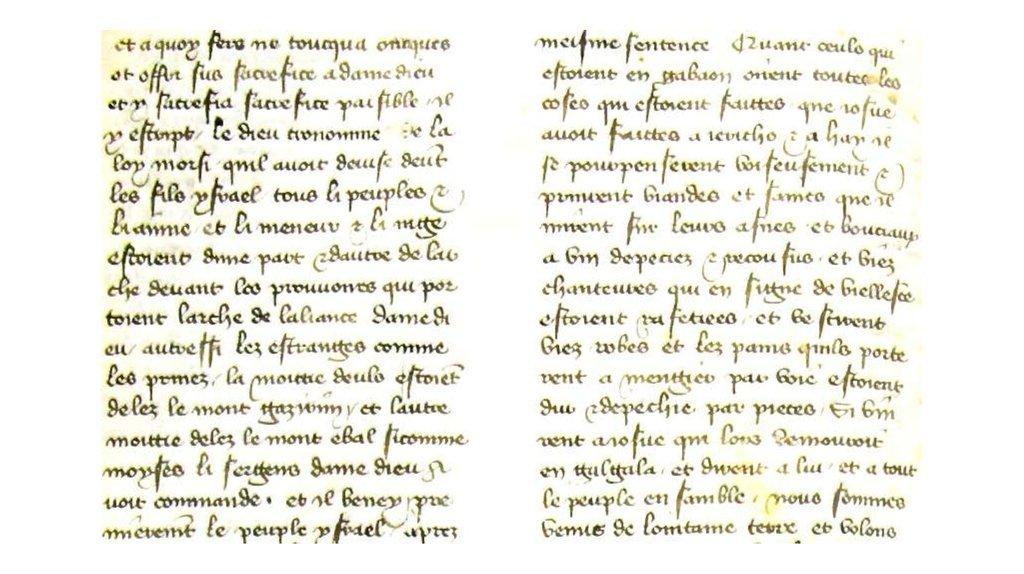 et a quoy fers ne toucqua oncques
et offri sus sacrefice a dame dieu
et y sacrefia sacrefice paisible il
y escript le dieu tronomme de la
loy moysi quil avoit devise devt
les fils ysrael tous li peuples &
li ainne et li meneur & li iuge
estoient dune part & dautre de lar
che devant les prouvoires qui por
toient larche de laliance damedi
eu autressi lez estranges comme
les privez la moittie deuls estoiet
delez le mont gazirim et lautre
moittie delez le mont ebal sicomme
moyses li sergens dame dieu a
voit commande. et il beney pre
mierement le peuple ysrael aprez
meisme sentence Quant ceuls qui
estoient en gabaon oirent toutes les
coses qui estoient faittes que iosue
avoit faittes a iericho & a hay il
se pourpenserent voiseusement &
prinrent viandes et sainces que il
mirent sur leurs asnes et bouciaux
a vin depeciez & recousus et viez
chauceures qui en signe de viellesce
estoient rafetiees et vestirent
viez robes et lez pains quils porte
rent a mengier par voie estoient
dur & depechie par pieces Si vin
rent a iosue qui lors demouroit
en galgala et dirent a lui et a tout
le peuple ensamble nous sommes
venus de lointaine terre et volons